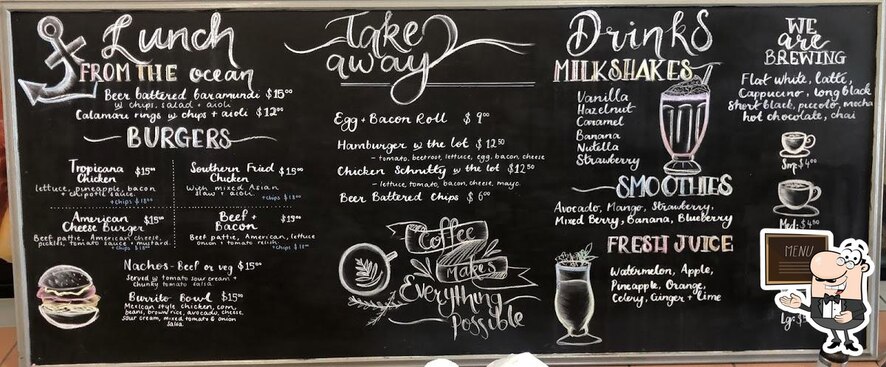 Lunch
FROM THE ocean
Beer battered baramundi $15.00
w chips, salad + aioli
Calamari rings w chips + aioli $12.00
BURGERS
Tropicana Chicken $15.00
lettuce, pineapple, bacon
+ chipotle sauce.
+chips $18.00
Southern Fried Chicken $15.00
With mixed Asian
slaw + aioli.
+chips $18.00
American Cheese Burger $15.00
Beef pattie, American cheese,
pickles, tomato sauce + mustard.
+chips $18.00
Beef + Bacon
Beef pattie, American, lettuce
onion + tomato relish.
+chips $18.00
Nachos - Beef or veg $15.00
Served w tomato sour cream +
chunky tomato salsa
Burrito Bowl $15.00
Mexican style chicken, corn,
beans, brown rice, avocado, cheese,
sour cream, mixed tomato & onion
salsa
Take away
Egg + Bacon Roll $9.00
Hamburger w the lot $12.50
- tomato, beetroot, lettuce, egg, bacon, cheese
Chicken Schnitty w the lot $12.50
- lettuce, tomato, bacon, cheese, mayo.
Beer Battered Chips $6.00
Coffee
Makes
Everything
Possible
Drinks
MILKSHAKES
Vanilla
Hazelnut
Caramel
Banana
Nutella
Strawberry
SMOOTHIES
Avocado, Mango, Strawberry,
Mixed Berry, Banana, Blueberry
FRESH JUICE
Watermelon, Apple,
Pineapple, Orange,
Celery, Ginger + Lime
WE
are
BREWING
Flat white, latte,
Cappucino, long black
Short black, piccolo, mocha
hot chocolate, chai
Sm: $4.00
Med:
MENU
Lg: